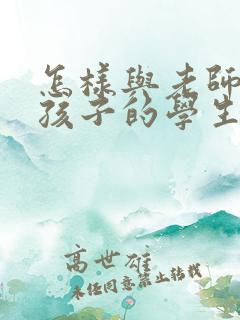 怎樣與老師
孩子的學生
高世雄
未經同意禁止轉載